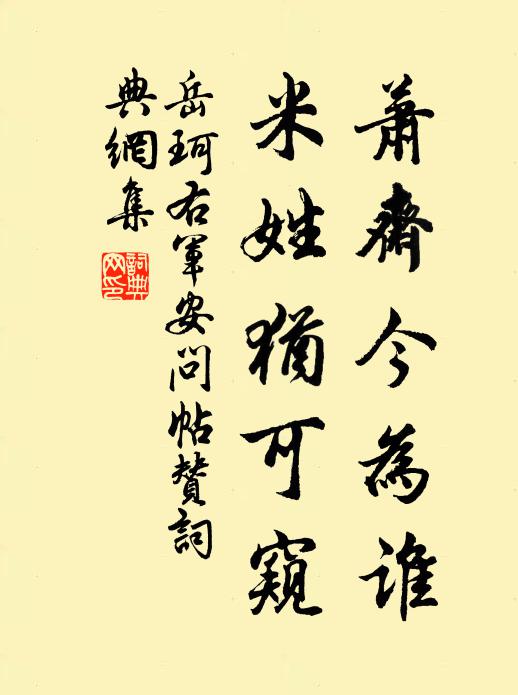 蕭齋今為誰
米姓猶可窺
岳珂右軍安問帖贊詞
典網集
詞典網印